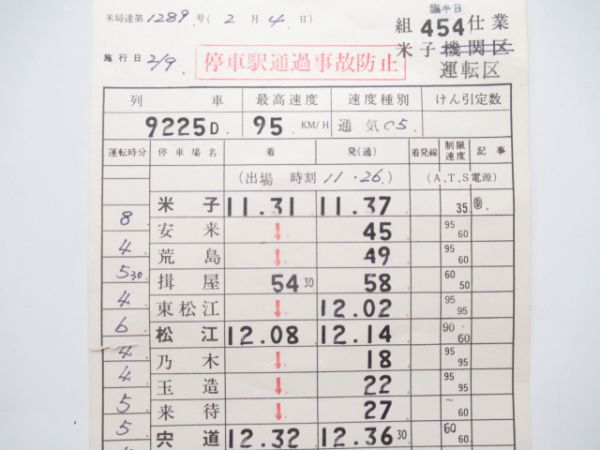 米局達第1289号(2月4日)
臨キB
組454仕業
施行日 2/9
停車駅通過事故防止
米子機関区
運転区
列車 最高速度 速度種別 けん引定数
9225D. 95 KM/H 通気C5
運転時分 停車場名 着 発(通) 着発線 制限速度 記事
(出場 時刻 11.26) (A.T.S電源)
米子 11.31 11.37 35
8 安来 ↓ 45 95 60
4 荒島 ↓ 49 95 60
530 揖屋 54 30 58 60 50
4 東松江 ↓ 12.02 95 95
6 松江 12.08 12.14 90 60
4 乃木 ↓ 18 95 95
4 玉造 ↓ 22 95 95
5 来待 ↓ 27 ~ 60
5 宍道 12.32 12.36 30 60 60